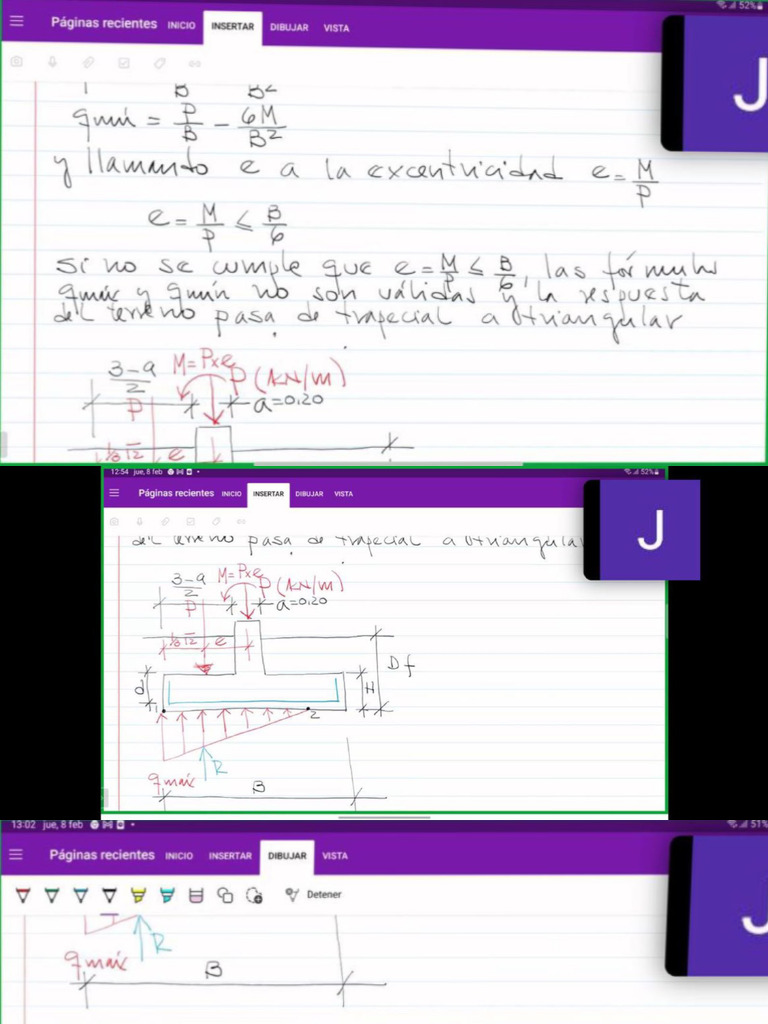 52%
Páginas recientes INICIO INSERTAR DIBUJAR VISTA
J
B B²
qmín = P/B - 6M/B²
y llamando e a la excentricidad e = M/P
e = M/P ≤ B/6
si no se cumple que e = M/P ≤ B/6, las fórmulas
qmáx y qmín no son válidas y la respuesta
del terreno pasa de trapecial a triangular
3-a/2 M=Pxe P (KN/m)
P a=0.20
e
12:54 jue, 8 feb 52%
Páginas recientes INICIO INSERTAR DIBUJAR VISTA
J
del terreno pasa de trapecial a triangular
3-a/2 M=Pxe P (KN/m)
P a=0.20
e
Df
d H
1 2
R
qmáx
B
13:02 jue, 8 feb 51%
Páginas recientes INICIO INSERTAR DIBUJAR VISTA
J
Detener
R
qmáx
B